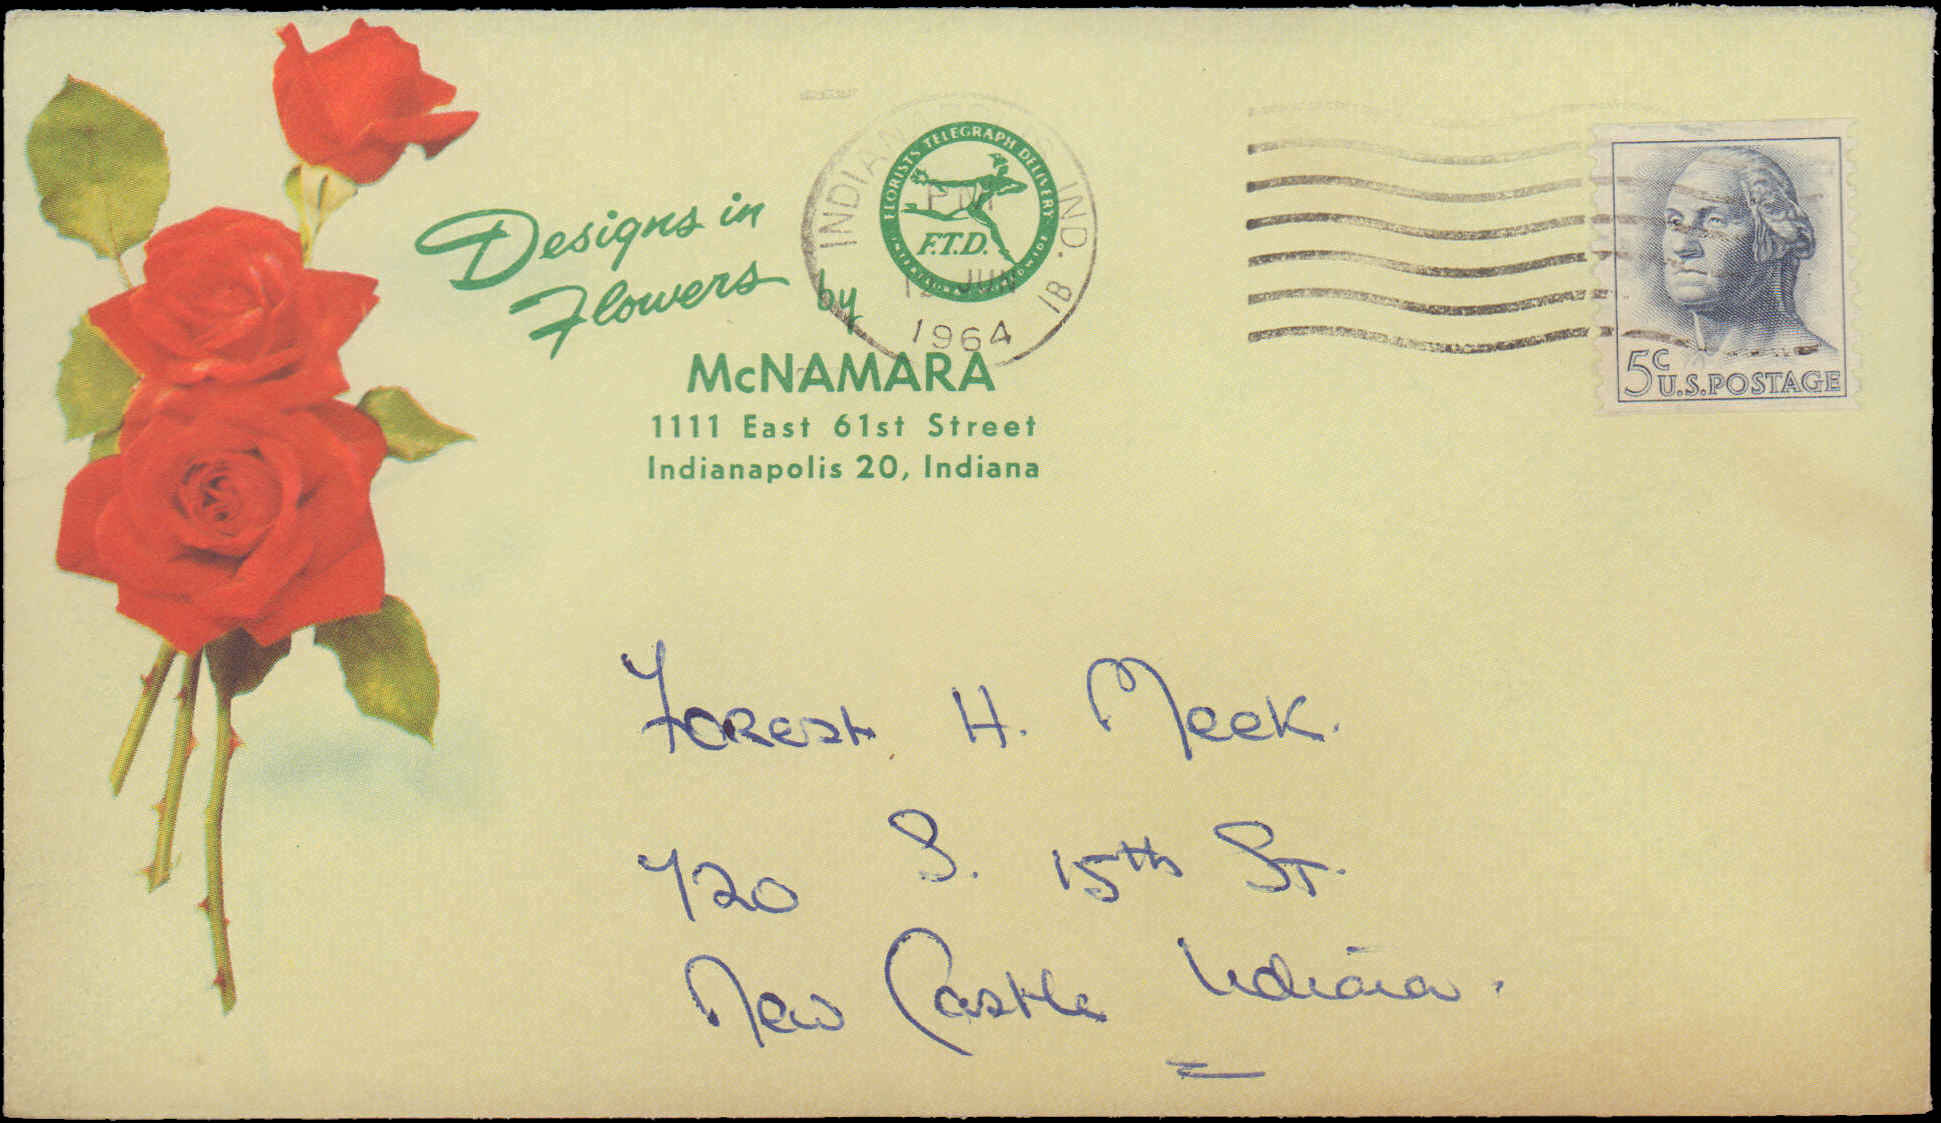 Designs in
Flowers by
McNAMARA
1111 East 61st Street
Indianapolis 20, Indiana
FLORISTS TELEGRAPH DELIVERY
F.T.D.
INDIANAPOLIS IND.
PM
JUN
1964
1B
5c U.S. POSTAGE
Forest H. Meek.
720 S. 15th St.
New Castle Indiana.